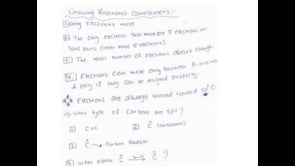 Drawing Resonance Contributors:-
① Only electrons move
② The only electrons that move are π electrons or
lone pairs (never move σ electrons)
③ The total number of electrons doesn't change.
④ Electrons can move only between P. orbitals
& only if they can be aligned properly
Electrons are always moved toward sp² C
⇒ What type of Carbons are sp²?
① C=C ② C⁺ (Carbocation)
③ Ċ → Carbon Radical
④ What about